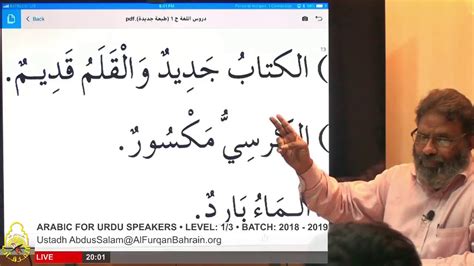 دروس اللغة ج ١ (طبعة جديدة).pdf
) الكتابُ جَدِيدٌ وَالْقَلَمُ قَدِيمٌ.
) الكُرْسِيُّ مَكْسُورٌ.
الْمَاءُ بَارِدٌ.
ARABIC FOR URDU SPEAKERS • LEVEL: 1/3 • BATCH: 2018 - 2019
Ustadh AbdusSalam@AlFurqanBahrain.org
LIVE 20:01